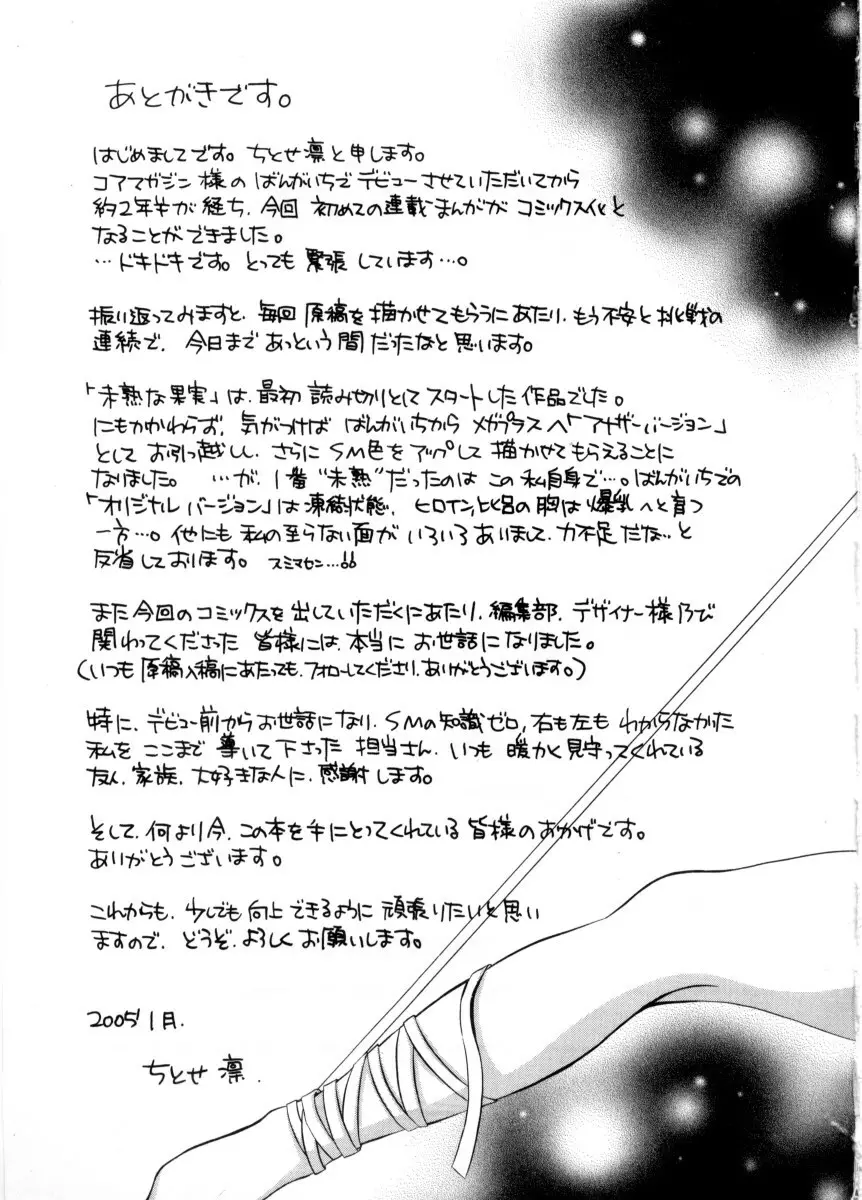 あとがきです。
はじめましてです。ちとせ凛と申します。
コアマガジン様のばんがいちでデビューさせていただいてから
約2年半が経ち、今回初めての連載まんががコミックス化と
なることができました。
…ドキドキです。とっても緊張しています…。
振り返ってみますと、毎回原稿を描かせてもらうにあたり、もう不安と挑戦の
連続で、今日まであっという間だったなと思います。
「未熟な果実」は、最初読み切りとしてスタートした作品でした。
にもかかわらず、気がつけばばんがいちからメガプラスへ「アナザーバージョン」
としてお引っ越しし、さらにSM色をアップして描かせてもらえることに
なりました。…が、1番“未熟”だったのはこの私自身で…。ばんがいちでの
「オリジナルバージョン」は凍結状態、ヒロイン比呂の胸は爆乳へと育つ
一方…。他にも私の至らない面がいろいろありまして、力不足だな…と
反省しております。スミマセン…!!
また今回のコミックスを出していただくにあたり、編集部、デザイナー様及び
関わってくださった皆様には、本当にお世話になりました。
(いつも原稿入稿にあたっても、フォローしてくださり、ありがとうございます。)
特に、デビュー前からお世話になり、SMの知識ゼロ、右も左もわからなかった
私をここまで導いて下さった担当さん、いつも暖かく見守ってくれている
友人、家族、大好きな人に、感謝します。
そして、何より今、この本を手にとってくれている皆様のおかげです。
ありがとうございます。
これからも、少しでも向上できるように頑張りたいと思い
ますので、どうぞ、よろしくお願いします。
2005 1月.
ちとせ凛.